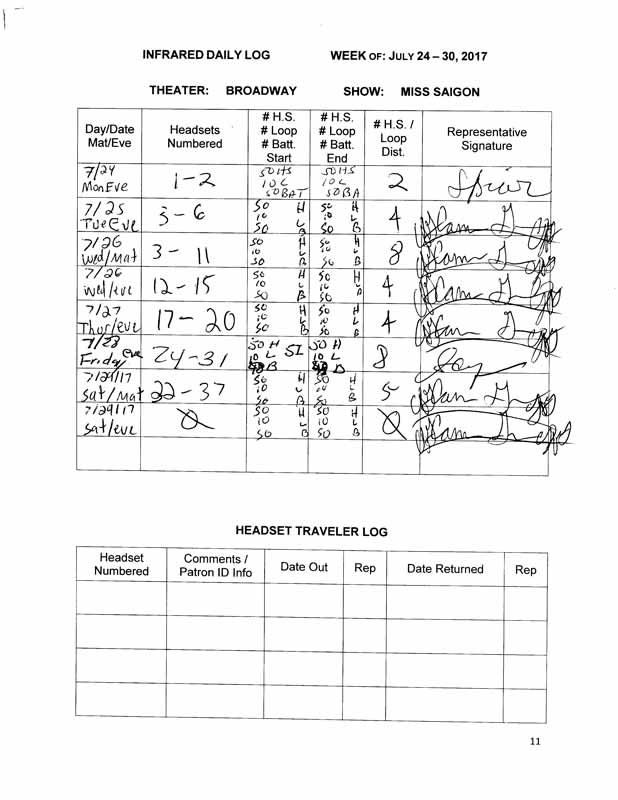 INFRARED DAILY LOG WEEK OF: JULY 24 – 30, 2017
THEATER: BROADWAY SHOW: MISS SAIGON
Day/Date Mat/Eve Headsets Numbered # H.S. # Loop # Batt. Start # H.S. # Loop # Batt. End # H.S. / Loop Dist. Representative Signature
7/24 Mon Eve 1-2 50 HS 10 L 50 BAT 50 HS 10 L 50 BA 2
7/25 Tue Eve 3-6 50 H 10 L 50 B 50 H 10 L 50 B 4
7/26 Wed/Mat 3-11 50 H 10 L 50 B 50 H 10 L 50 B 8
7/26 Wed/eve 12-15 50 H 10 L 50 B 50 H 10 L 50 B 4
7/27 Thur/eve 17-20 50 H 10 L 50 B 50 H 10 L 50 B 4
7/28 Friday eve 24-31 50 H 10 L 50 H 10 L 8
7/29/17 Sat/Mat 22-37 50 H 10 L 50 B 50 H 10 L 50 B 5
7/29/17 Sat/eve 0 50 H 10 L 50 B 50 H 10 L 50 B 0
HEADSET TRAVELER LOG
Headset Numbered Comments / Patron ID Info Date Out Rep Date Returned Rep
11